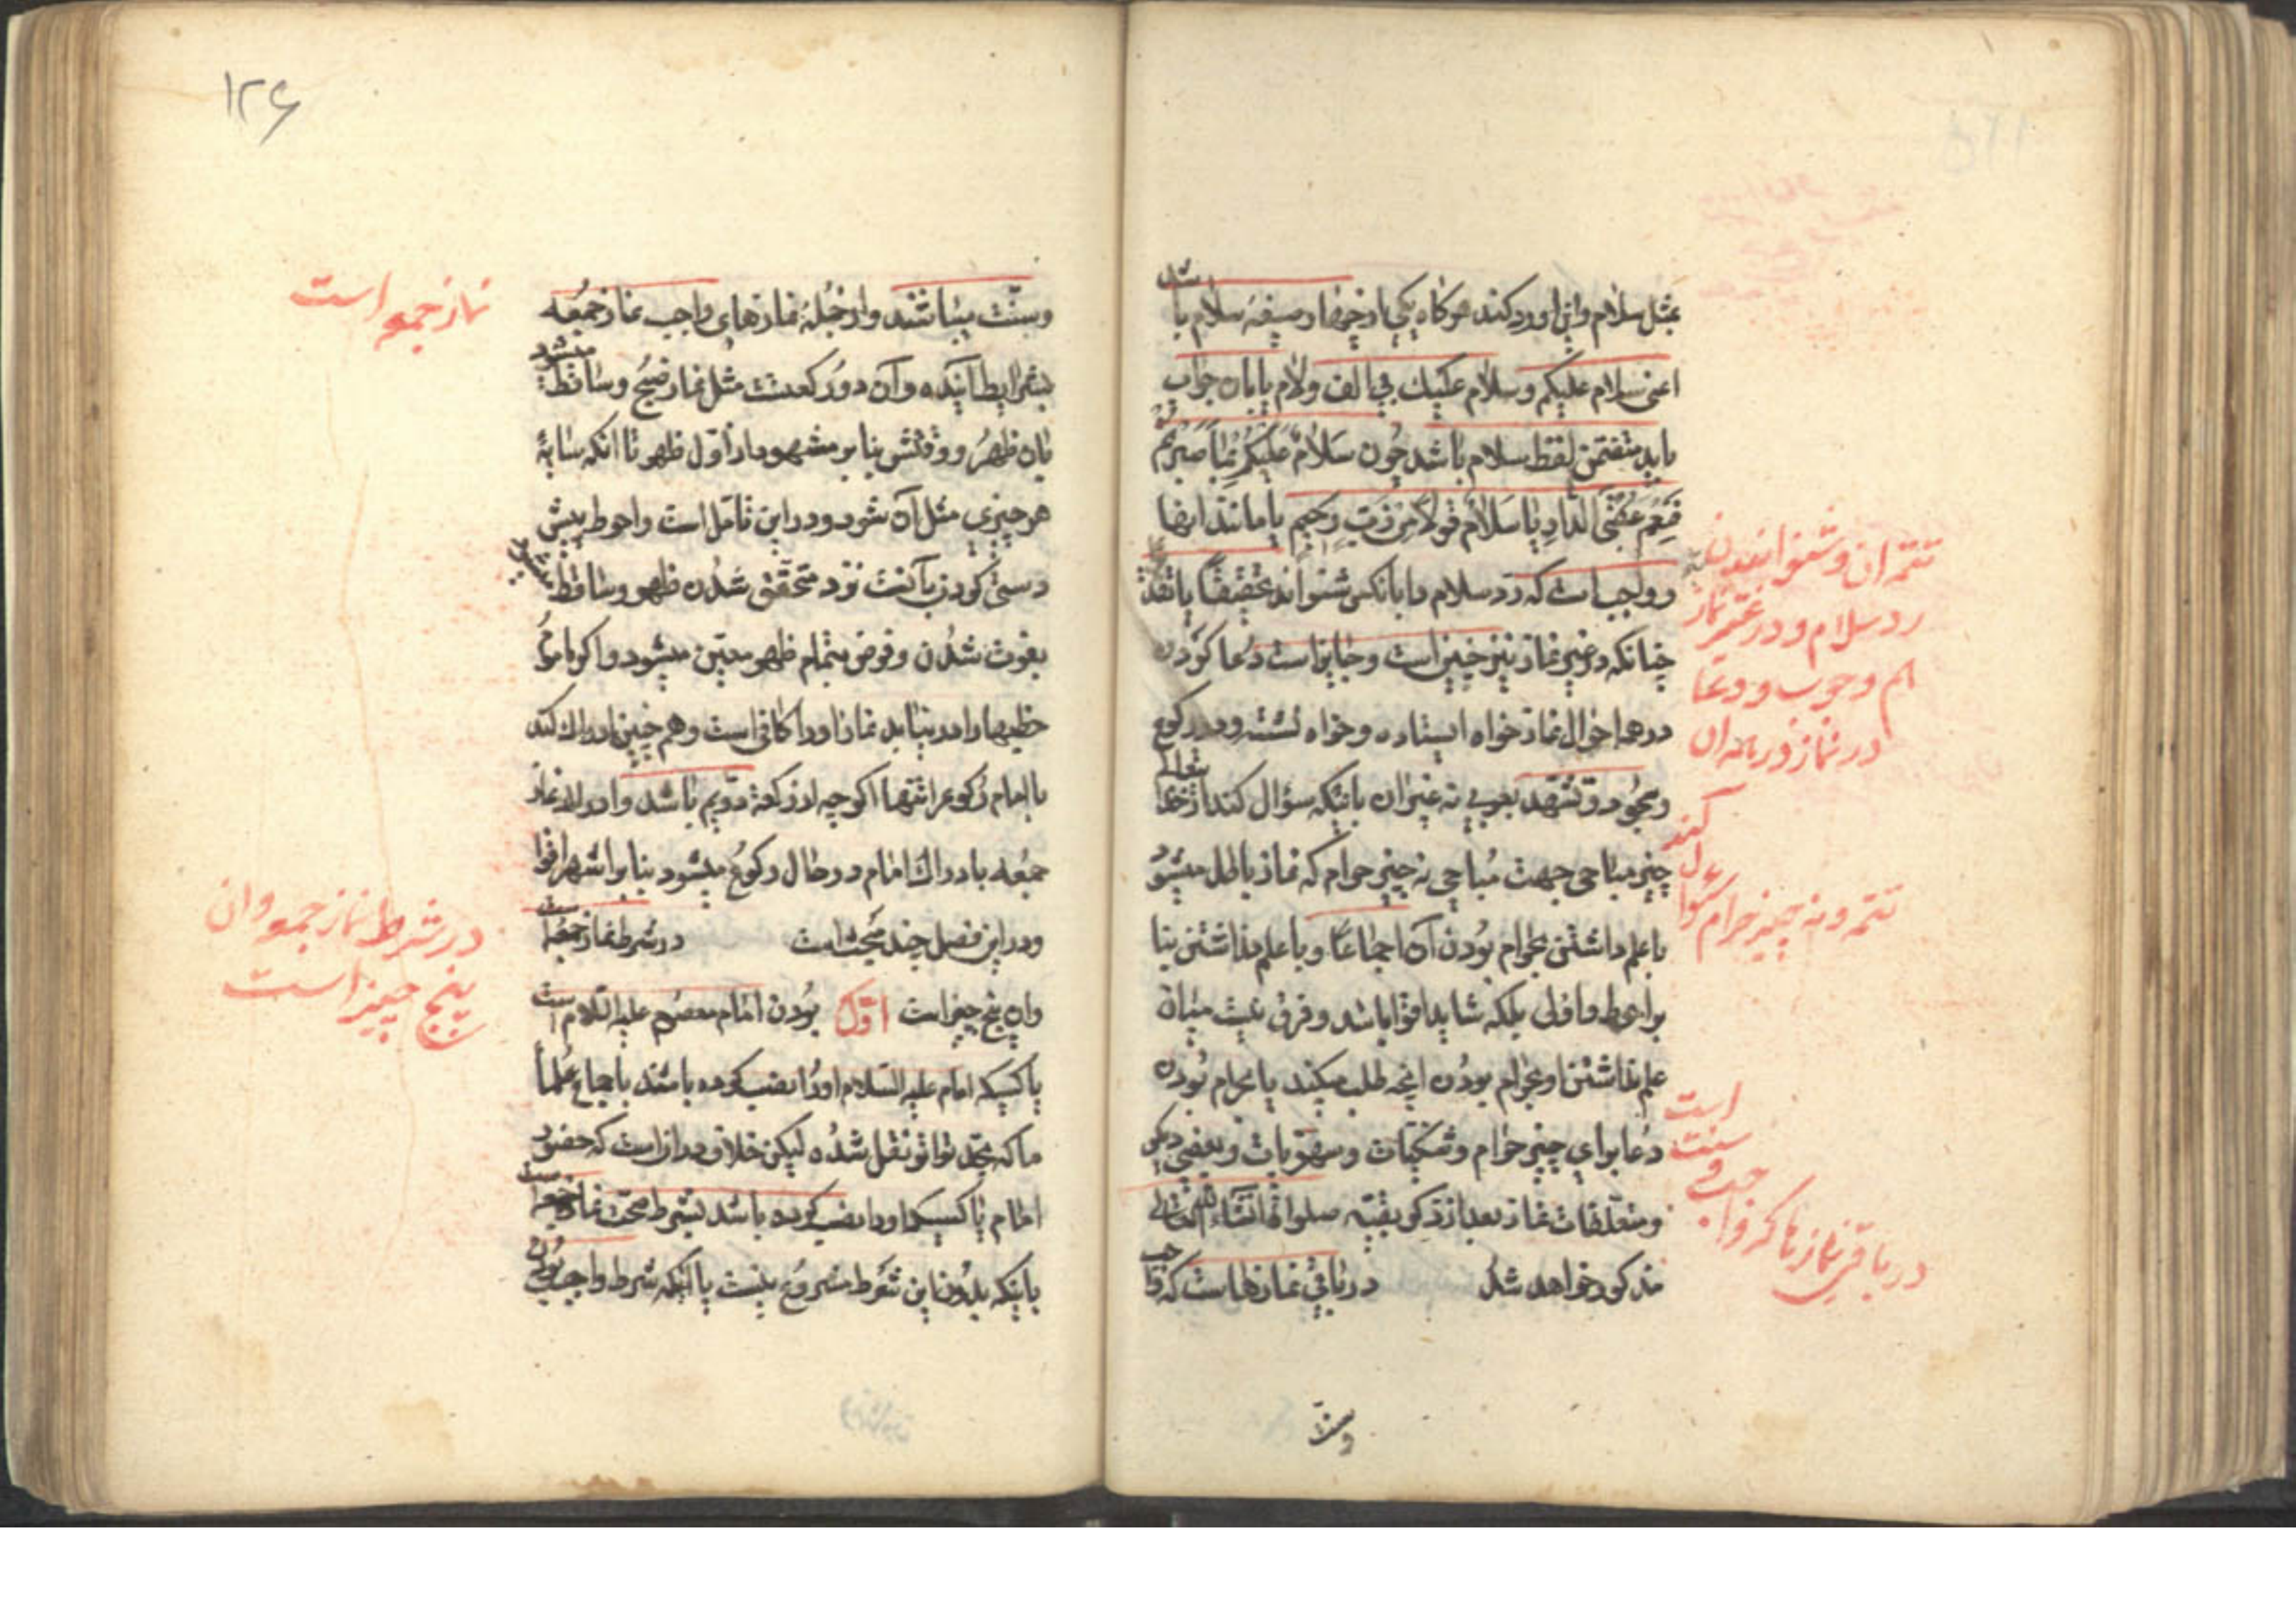 بمثل سلام واین را ورد کند هر کاه یکی از اینها در صیغهٔ سلام باشد
اعنی سلام علیکم وسلام علیك بی الف ولام یا بان جواب
باید متضمن لفظ سلام باشد چون سَلَامٌ عَلَیْکُمْ بِمَا صَبَرْتُمْ
فَنِعْمَ عُقْبَی الدَّارِ یا سَلَامٌ قَوْلًا مِنْ رَبٍّ رَحِیمٍ یا مانند اینها
وواجب است که رد سلام را بانکس شنواند تحقیقًا یا تقدیرًا
چنانکه در غیر نماز نیز چنین است وجایز است دعا کردن
در همه احوال نماز خواه ایستاده وخواه نشسته ودر رکوع
وسجود وتشهد بعربی نه غیر ان باینکه سؤال کند از خدایتعالی
چیز مباحی جهت مباحی نه چیز حرام که نماز باطل میشود
با علم داشتن بحرام بودن آن اجماعًا وبا علم نداشتن بنا
بر احوط واولی بلکه شاید اقوا باشد وفرق نیست میان
علم نداشتن او بحرام بودن انچه طلب میکند یا بحرام بودن
دعا برای چیز حرام وشکیات وسهویات وبعضی دیکر
ومتعلقات نماز بعد از ذکر بقیّه صلواتها انشاء الله تعالی
مذکور خواهد شد در باقی نمازهاست که واجب
وسنت
تتمه ان وشنوانیدن
رد سلام ودر غیر نماز
هم وجوب ودعا
در نماز در همه ان
تتمه ونه چیز حرام سؤال کند
در باقی نمازها که واجب و سنت است
۱۲۶
وسنّت میباشند واز جُملهٔ نمازهای واجب نماز جمُعه
بشرایط آینده وآن دو رکعتست مثل نماز صبح وساقط میشود
بان ظهر ووقتش بنا بر مشهور از اوّل ظهر تا انکه سایهٔ
هر چیزی مثل آن شود ودر این تأمّل است واحوط پیش
دستی کردن بآنست نزد متحقّق شدن ظهر وساقط میشود
بفوت شدن وفرض بتمام ظهر معیّن میشود واکر ماموم
خطبها را در نیابد نماز او را کافی است وهم چنین ادراك کند
با امام رکوع را تنها اکر چه از رکعة دویم باشد وادراك نماز
جمعه بادراك امام در حال رکوع میشود بنا بر اشهر اقوا
ودر این فصل چند مبحث است در شرط نماز جمعه است
وان پنج چیز است اوّل بودن امام معصوم علیه السلام است
یا کسیکه امام علیه السلام او را نصب کرده باشد باجماع علما
ما که بحد تواتر نقل شده لیکن خلاف در ان است که حضور
امام یا کسیکه او را نصب کرده باشد شرط صحّت نماز جمعه است
باینکه بدون این شرط مشروع نیست یا اینکه شرط واجب بودن
نماز جمعه است
در شرط نماز جمعه وان
پنج چیز است